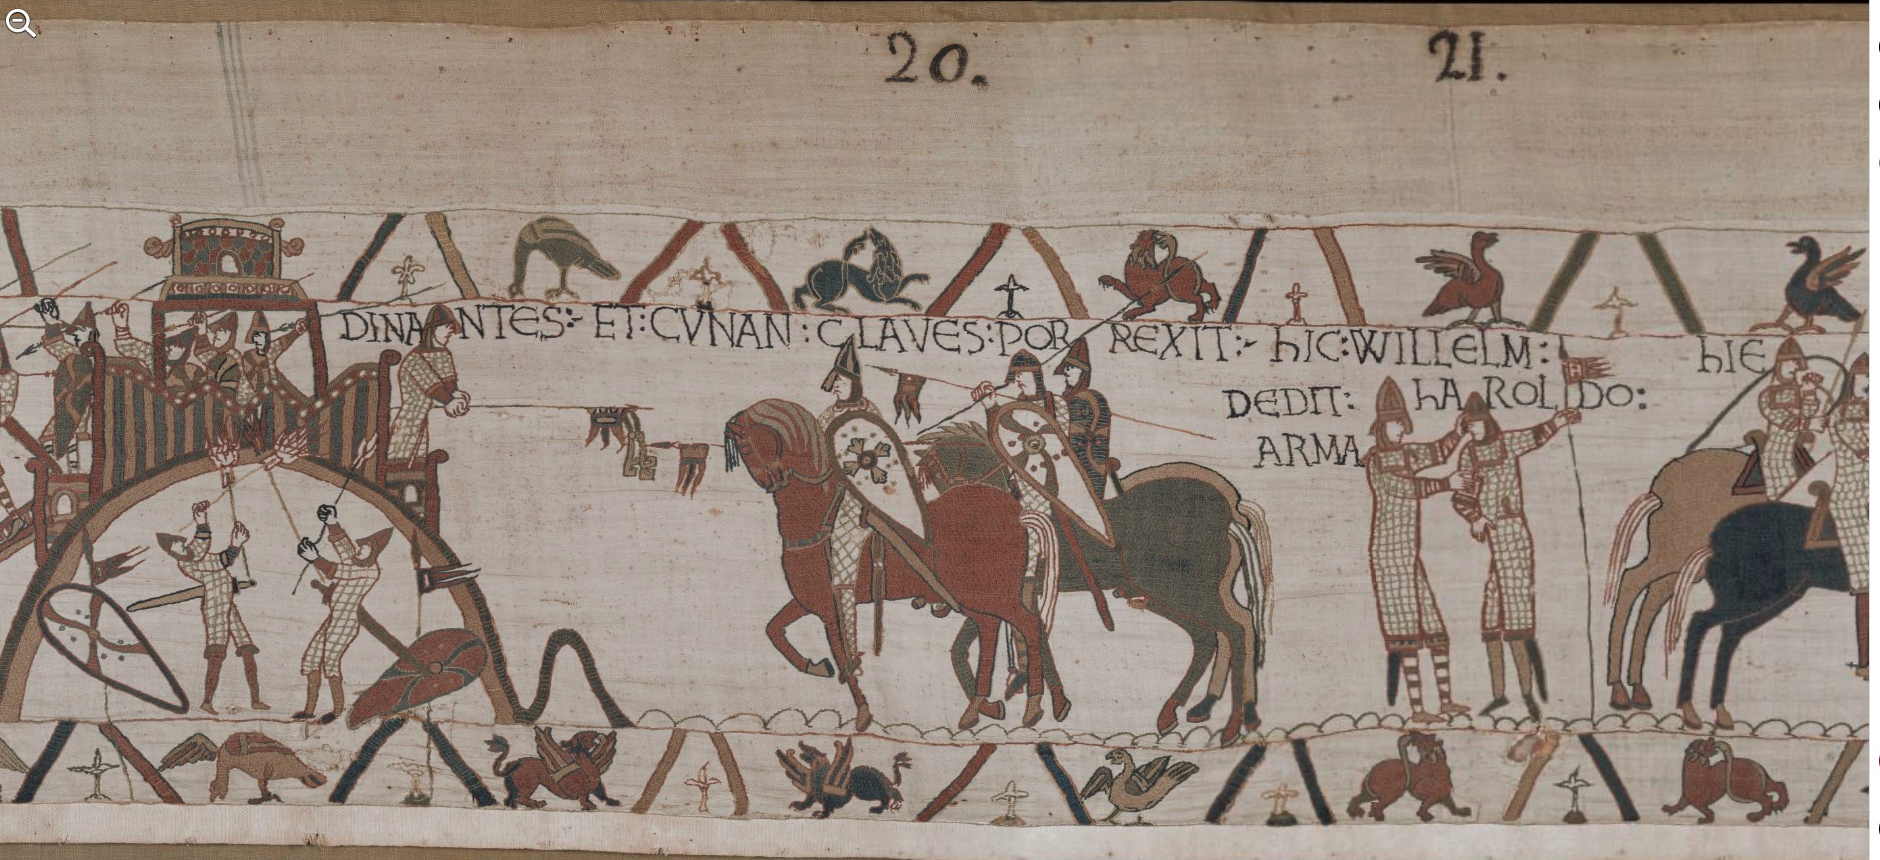 20. 21.
DINANTES:- ET:CVNAN:CLAVES:PORREXIT:- hIC:WILLELM: hIE
DEDIT: hAROLDO:
ARMA